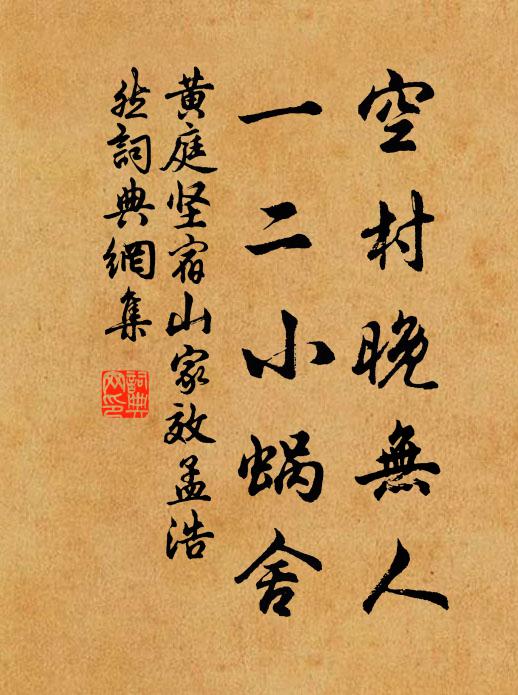 空村晚無人
一二小蜗舍
黄庭坚宿山家效孟浩
然詞典網集
詞典
网印